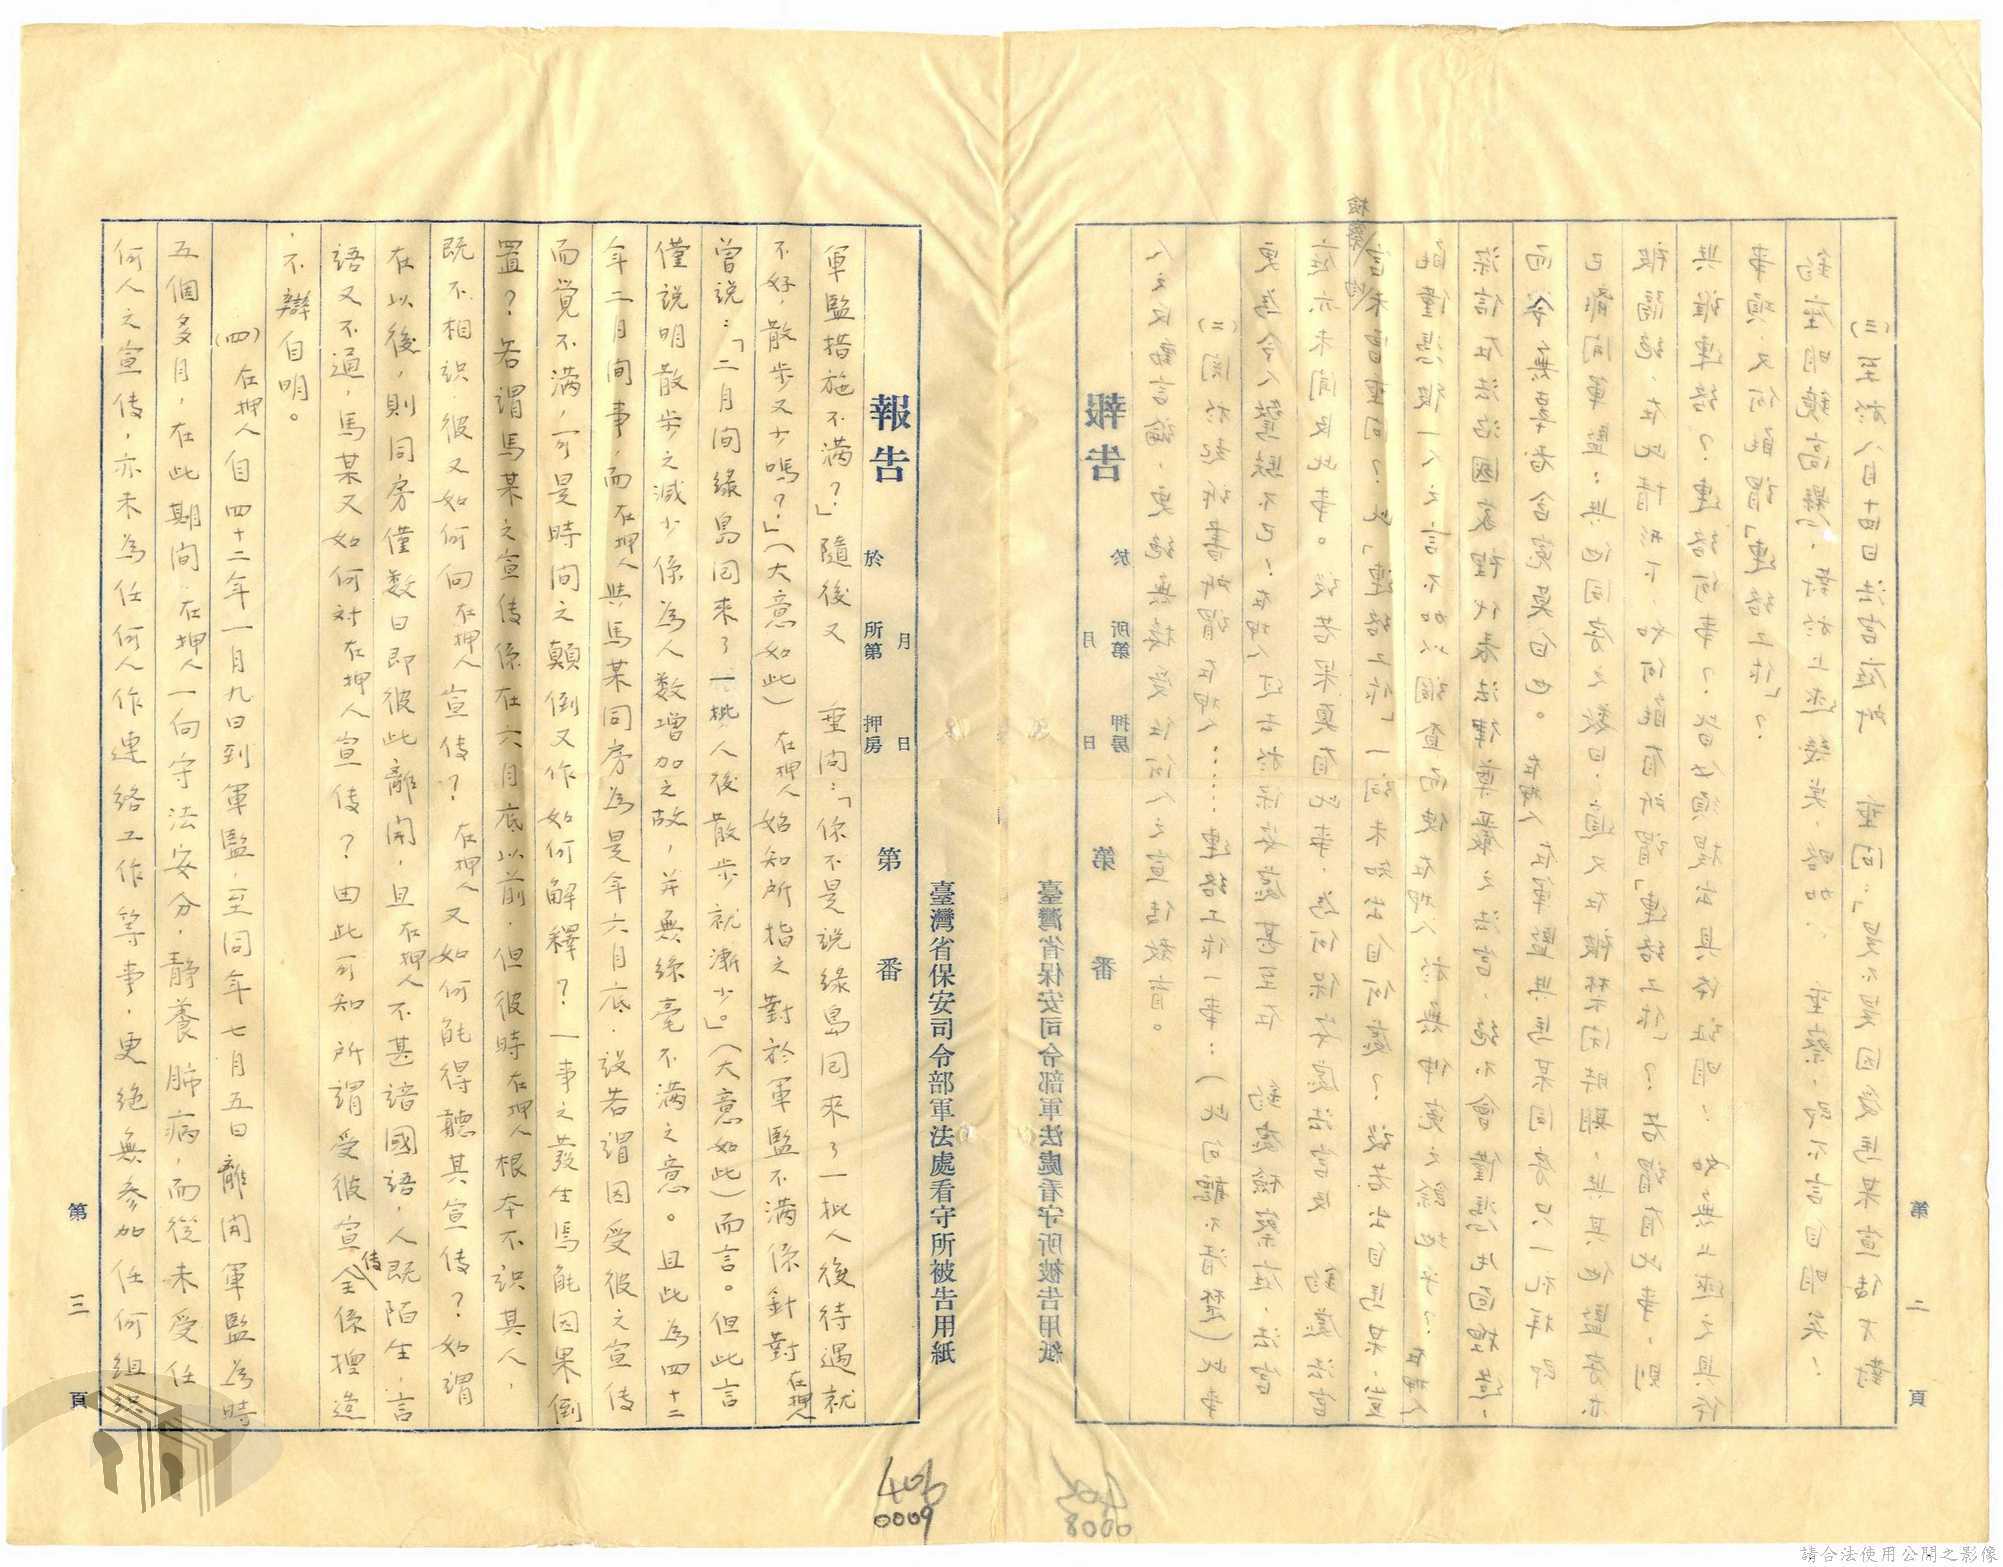 報告
於　月　日
所第　押房
第　番
臺灣省保安司令部軍法處看守所被告用紙
人之反動言論，更絕無接受任何人之宣傳教育。
(二)關於起訴書所謂在押人……連絡工作一事：（此句聽不清楚）此事
更為令人驚駭不已，在押人過去於保安處甚至在　鈞處檢察庭，法官
庭亦未聞及此事。設若果真有此事，為何保安處法官及　鈞處法官
檢察官均未曾垂問？此「連絡工作」一詞未知出自何處？設若出自馬某，豈
能僅憑彼一人之言不加以調查而使在押人於無伸冤之餘地乎？在押人
深信在法治國家裡代表法律尊嚴之法官，絕不會僅憑片面捏造，
而令無辜者含冤莫白也。在押人在軍監與馬某同房只一礼拜即
已離開軍監；與他同房之数日，適又在被禁閉時期，與其他監房亦
被隔絕，在此情形下，如何能有所謂「連絡工作」？若謂有此事，則
與誰連絡？連絡何事？皆必須提出具体証明？如無上述之具体
事項，又何能謂「連絡工作」？
鈞座明鏡高懸，對於上述幾点，略加　垂察，即不言自明矣！
(三)至於八月十四日法官庭所　垂問：「是不是因受馬某宣传才對
第二頁
0008
報告
於　月　日
所第　押房
第　番
臺灣省保安司令部軍法處看守所被告用紙
軍監措施不满？」隨後又　垂問：「你不是說緑島囘來了一批人後待遇就
不好，散步又少嗎？」（大意如此）在押人始知所指之對於軍監不满係針對在押人
曾說：「二月间緑島囘來了一批人後散步就漸少。」（大意如此）而言。但此言
僅說明散步之减少係為人数增加之故，并無絲毫不满之意。且此為四十二
年二月间事，而在押人與馬某同房為是年六月底，設若謂因受彼之宣传
而覚不满，可是時间之顛倒又作如何解釋？一事之發生焉能因果倒
置？若謂馬某之宣传係在六月底以前，但彼時在押人根本不識其人，
既不相識，彼又如何向在押人宣传？在押人又如何能得聽其宣传？如謂
在以後，則同房僅数日即彼此離開，且在押人不甚諳國語，人既陌生，言
語又不通，馬某又如何对在押人宣传？由此可知所謂受彼宣传全係捏造
不辯自明。
(四)在押人自四十二年一月九日到軍監，至同年七月五日離開軍監為時
五個多月，在此期间，在押人一向守法安分，靜養肺病，而從未受任
何人之宣传，亦未為任何人作連絡工作等事，更絕無参加任何組织
第三頁
406
0009
請合法使用公開之影像